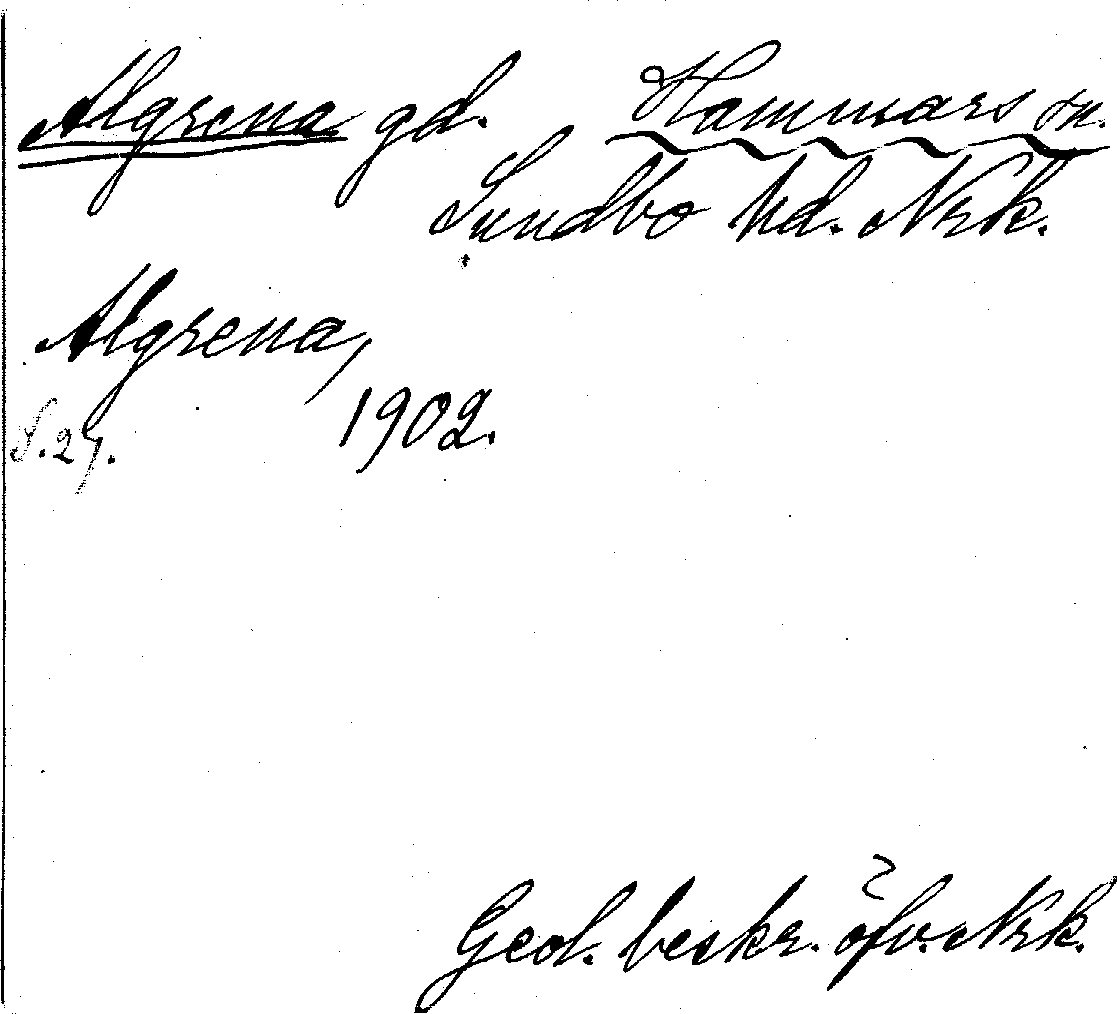 Algrena gd. Hammars sn.
Sundbo hd. Nrk.
Algrena,
1902.
S. 27.
Geol. beskr. öfv. Nrk.